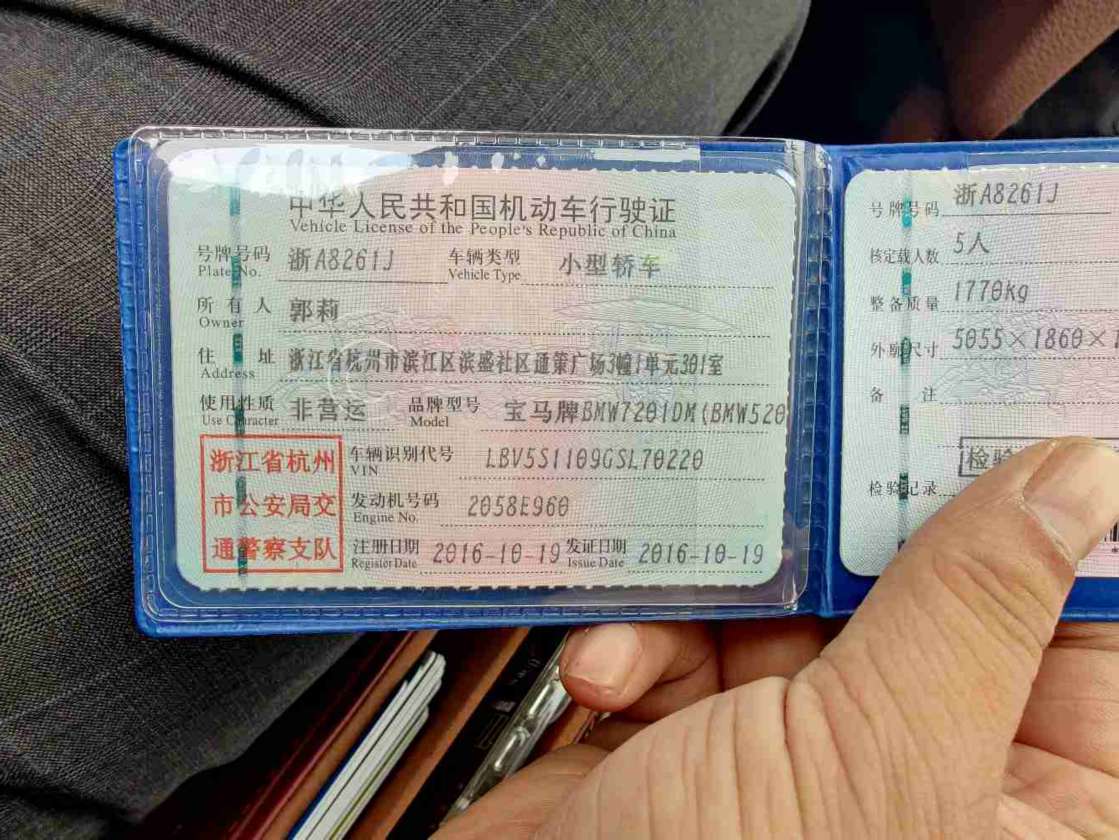 中华人民共和国机动车行驶证
Vehicle License of the People's Republic of China
号牌号码 浙A8261J 车辆类型 小型轿车
Plate No. Vehicle Type
所有人 郭莉
Owner
住址 浙江省杭州市滨江区滨盛社区通策广场3幢1单元301室
Address
使用性质 非营运 品牌型号 宝马牌BMW7201DM(BMW520
Use Character Model
浙江省杭州
市公安局交
通警察支队
车辆识别代号 LBV5S1109GSL70220
VIN
发动机号码 2058E960
Engine No.
注册日期 2016-10-19 发证日期 2016-10-19
Register Date Issue Date
号牌号码 浙A8261J
核定载人数 5人
整备质量 1770kg
外廓尺寸 5055×1860×
备注
检验记录
检验